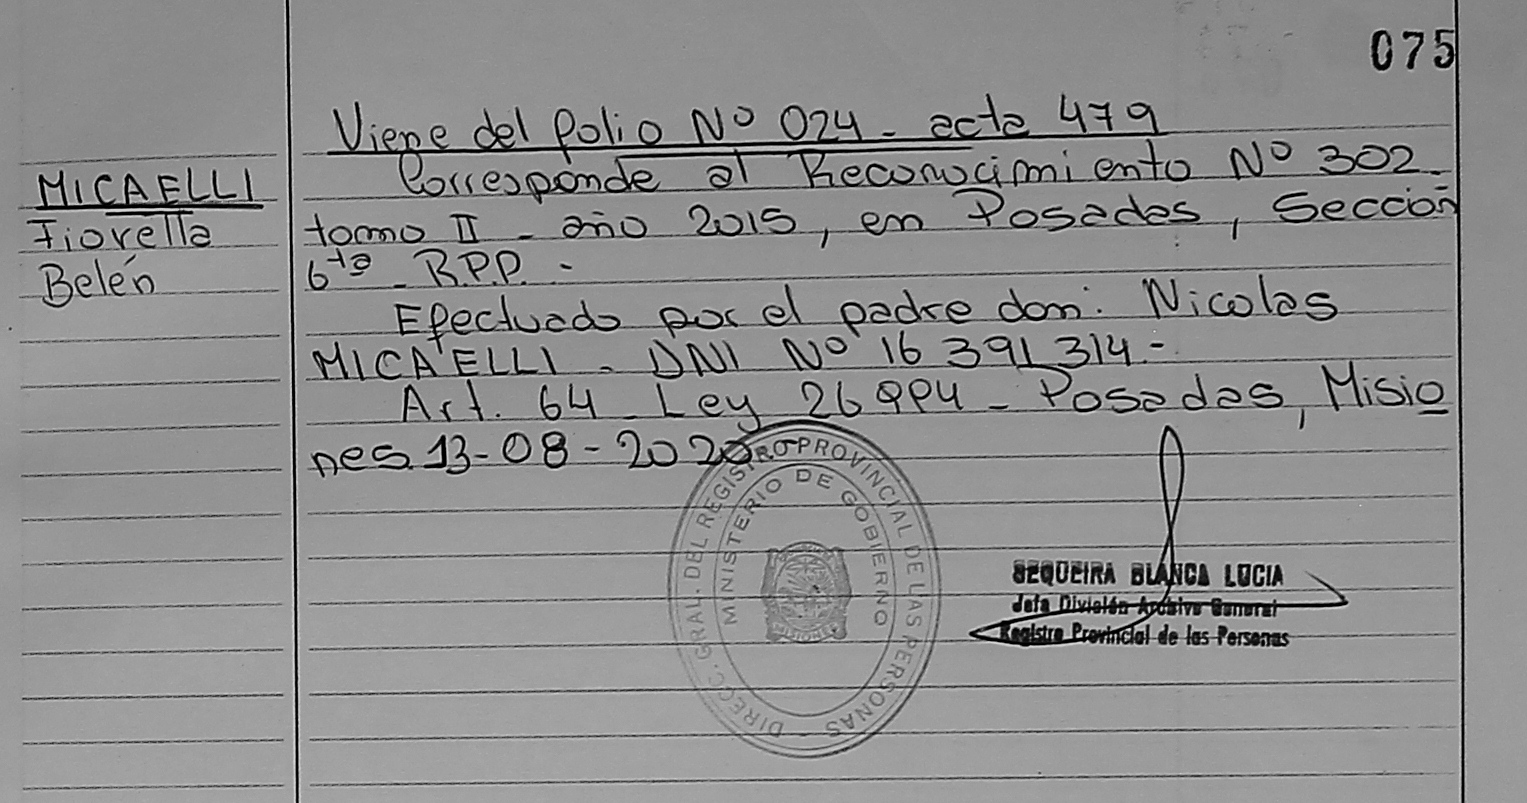 075
Viene del folio Nº 024 - acta 479
MICAELLI
Fiorella
Belén
Corresponde al Reconocimiento Nº 302-
tomo II - año 2015, en Posadas, Sección
6ta - R.P.P. -
Efectuado por el padre don: Nicolas
MICAELLI - DNI Nº 16 391 314 -
Art. 64 - Ley 26994 - Posadas, Misio
nes. 13-08-2020
DIRECC. GRAL. DEL REGISTRO PROVINCIAL DE LAS PERSONAS
MINISTERIO DE GOBIERNO
MISIONES
SEQUEIRA BLANCA LUCIA
Jefa División Archivo General
Registro Provincial de las Personas